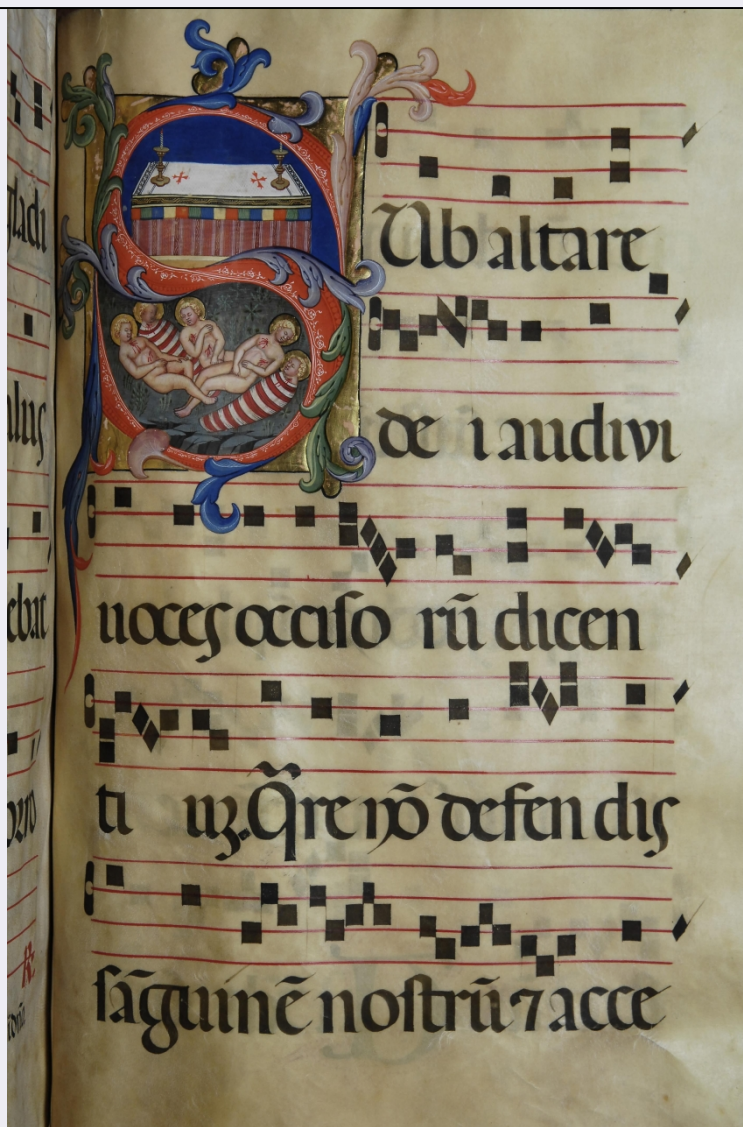 SUb altare
de i audivi
uoces occiso rū dicen
ti uꝫ. Qr̄e nō defen dis
sāguinē nostrū ⁊ acce